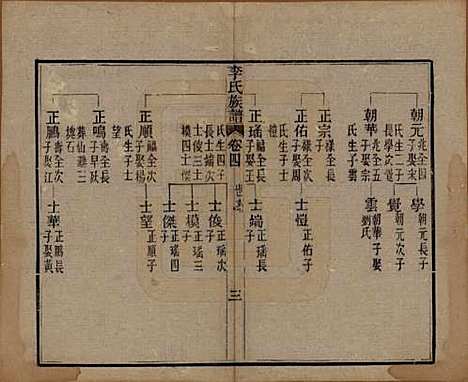 朝元兆全四
子娶宋
氏生二子
長學次覺
學朝元長子
覺朝元次子
朝華兆全五
子娶宗
氏生子雲
雲朝華子娶
劉氏
正宗祿全長
子
正佑祿全次
子娶周
氏生子士愷
士愷正佑子
正瑤福全長
子娶王
氏生四子
長士端次
士俊三士
模四士傑
士端正瑤長
子
士俊正瑤次
子
士模正瑤三
子
士傑正瑤四
子
正順福全次
子娶楊
氏生子士
望
士望正順子
正鳴壽全長
子早歿
葬仙
正鵬壽全次
子娶江
士華正鵬長
子娶黃
李氏族譜
卷四
三